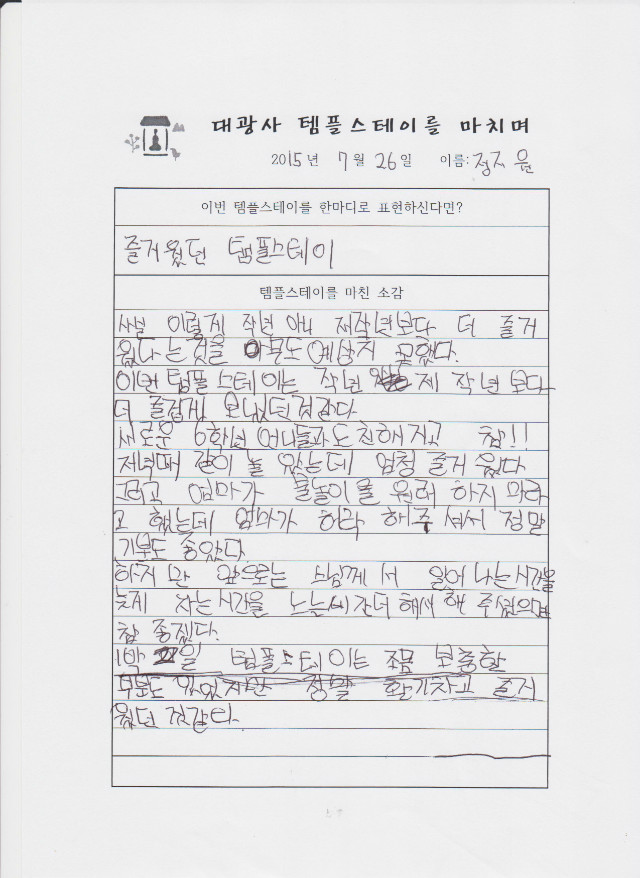 대광사 템플스테이를 마치며
2015년 7월 26일 이름: 정지윤
이번 템플스테이를 한마디로 표현하신다면?
즐거웠던 템플스테이
템플스테이를 마친 소감
사실 이렇게 작년 아니 재작년보다 더 즐거
웠나는 것을 아무도 예상치 못했다.
이번 템플스테이는 작년 제작년보다
더 즐겁게 보냈던것같다
새로운 6학년 언니들과도 친해지고 참!!
저녁때 같이 놀았는데 엄청 즐거웠다
그리고 엄마가 물놀이를 원래 하지 마라
고 했는데 엄마가 허락 해주셔서 정말
기분도 좋았다
하지만 앞으로는 스님께서 일어나는시간을
늦게 자는시간을 노는시간더 해서 해 주셨으면
참 좋겠다.
1박 2일 템플스테이는 조금 보충할
부분도 있었지만 정말 활기차고 즐거
웠던 것같다.